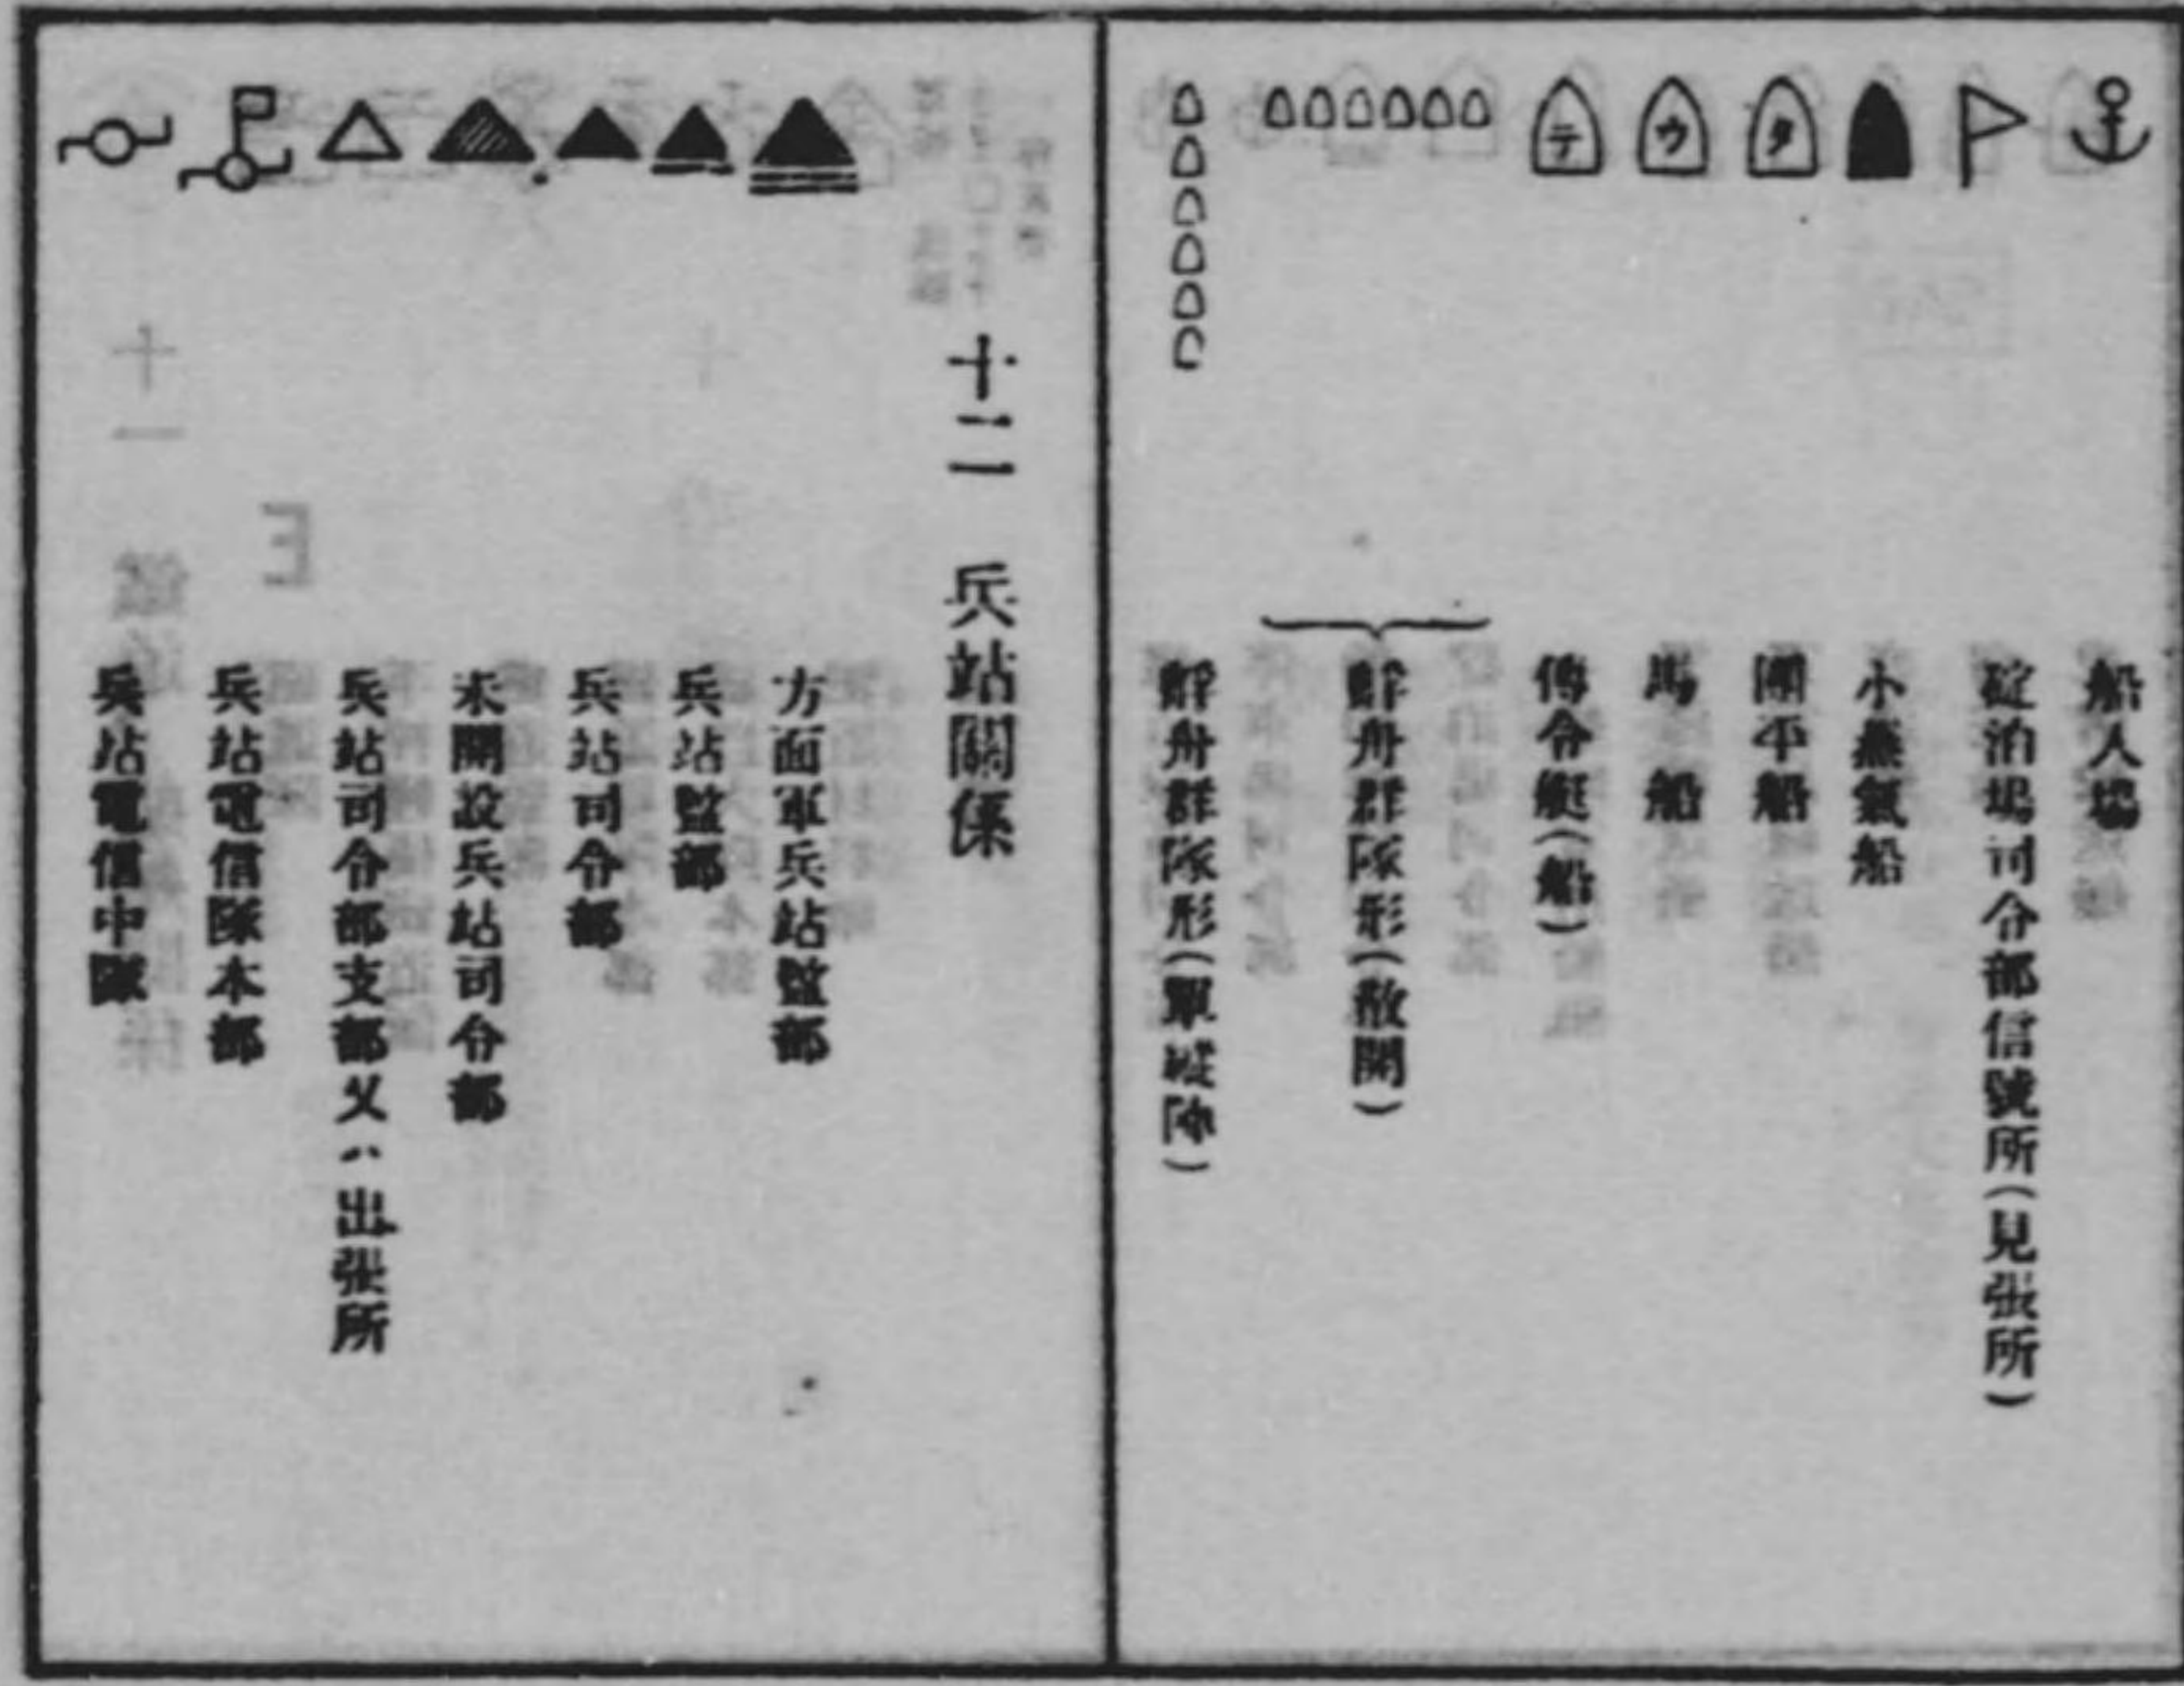 船入場
碇泊場司令部信號所(見張所)
小蒸氣船
タ
團平船
ウ
馬船
テ
傳令艇(船)
艀舟群隊形(散開)
艀舟群隊形(單縱陣)
十二 兵站關係
方面軍兵站監部
兵站監部
兵站司令部
未開設兵站司令部
兵站司令部支部又ハ出張所
兵站電信隊本部
兵站電信中隊